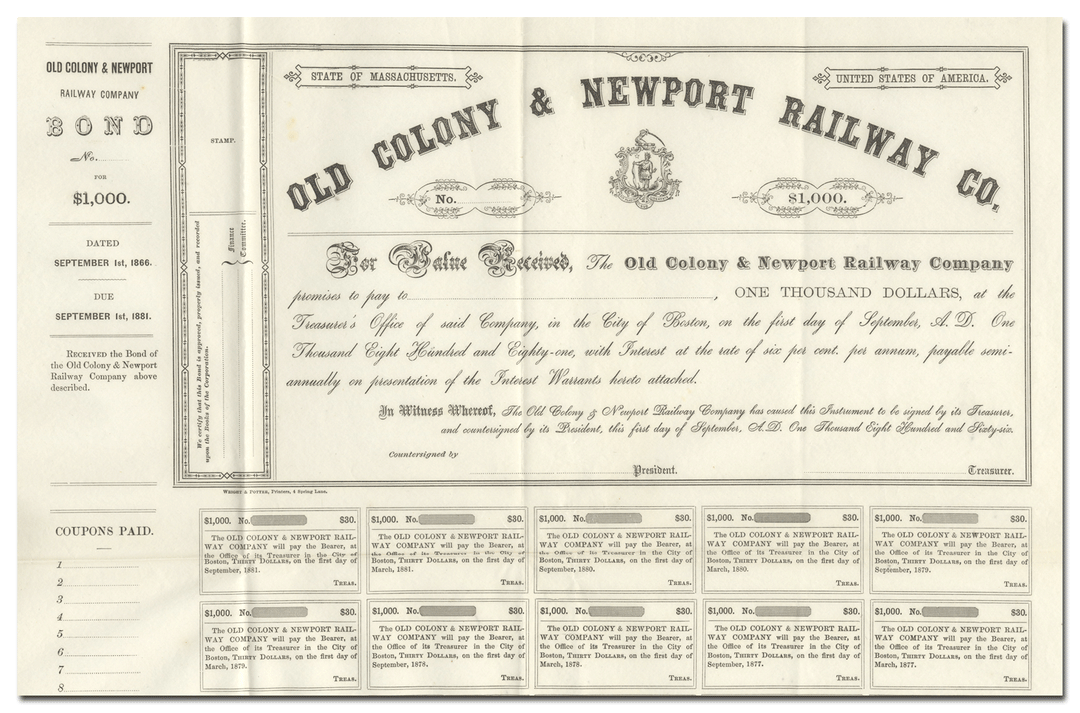 OLD COLONY & NEWPORT
RAILWAY COMPANY
BOND
No.
FOR
$1,000.
DATED
SEPTEMBER 1st, 1866.
DUE
SEPTEMBER 1st, 1881.
RECEIVED the Bond of
the Old Colony & Newport
Railway Company above
described.
STAMP.
We certify that this Bond is approved, properly issued, and recorded
upon the Books of the Corporation.
Finance
Committee.
STATE OF MASSACHUSETTS.
UNITED STATES OF AMERICA.
OLD COLONY & NEWPORT RAILWAY CO.
No.
$1,000.
For Value Received, The Old Colony & Newport Railway Company
promises to pay to, ONE THOUSAND DOLLARS, at the
Treasurer's Office of said Company, in the City of Boston, on the first day of September, A. D. One
Thousand Eight Hundred and Eighty-one, with Interest at the rate of six per cent. per annum, payable semi-
annually on presentation of the Interest Warrants hereto attached.
In Witness Whereof, The Old Colony & Newport Railway Company has caused this Instrument to be signed by its Treasurer,
and countersigned by its President, this first day of September, A. D. One Thousand Eight Hundred and Sixty-six.
Countersigned by
President.
Treasurer.
WRIGHT & POTTER, Printers, 4 Spring Lane.
COUPONS PAID.
1
2
3
4
5
6
7
8
$1,000. No. $30.
The OLD COLONY & NEWPORT RAIL-
WAY COMPANY will pay the Bearer, at
the Office of its Treasurer in the City of
Boston, THIRTY DOLLARS, on the first day of
September, 1881.
TREAS.
$1,000. No. $30.
The OLD COLONY & NEWPORT RAIL-
WAY COMPANY will pay the Bearer, at
the Office of its Treasurer in the City of
Boston, THIRTY DOLLARS, on the first day of
March, 1881.
TREAS.
$1,000. No. $30.
The OLD COLONY & NEWPORT RAIL-
WAY COMPANY will pay the Bearer, at
the Office of its Treasurer in the City of
Boston, THIRTY DOLLARS, on the first day of
September, 1880.
TREAS.
$1,000. No. $30.
The OLD COLONY & NEWPORT RAIL-
WAY COMPANY will pay the Bearer, at
the Office of its Treasurer in the City of
Boston, THIRTY DOLLARS, on the first day of
March, 1880.
TREAS.
$1,000. No. $30.
The OLD COLONY & NEWPORT RAIL-
WAY COMPANY will pay the Bearer, at
the Office of its Treasurer in the City of
Boston, THIRTY DOLLARS, on the first day of
September, 1879.
TREAS.
$1,000. No. $30.
The OLD COLONY & NEWPORT RAIL-
WAY COMPANY will pay the Bearer, at
the Office of its Treasurer in the City of
Boston, THIRTY DOLLARS, on the first day of
March, 1879.
TREAS.
$1,000. No. $30.
The OLD COLONY & NEWPORT RAIL-
WAY COMPANY will pay the Bearer, at
the Office of its Treasurer in the City of
Boston, THIRTY DOLLARS, on the first day of
September, 1878.
TREAS.
$1,000. No. $30.
The OLD COLONY & NEWPORT RAIL-
WAY COMPANY will pay the Bearer, at
the Office of its Treasurer in the City of
Boston, THIRTY DOLLARS, on the first day of
March, 1878.
TREAS.
$1,000. No. $30.
The OLD COLONY & NEWPORT RAIL-
WAY COMPANY will pay the Bearer, at
the Office of its Treasurer in the City of
Boston, THIRTY DOLLARS, on the first day of
September, 1877.
TREAS.
$1,000. No. $30.
The OLD COLONY & NEWPORT RAIL-
WAY COMPANY will pay the Bearer, at
the Office of its Treasurer in the City of
Boston, THIRTY DOLLARS, on the first day of
March, 1877.
TREAS.